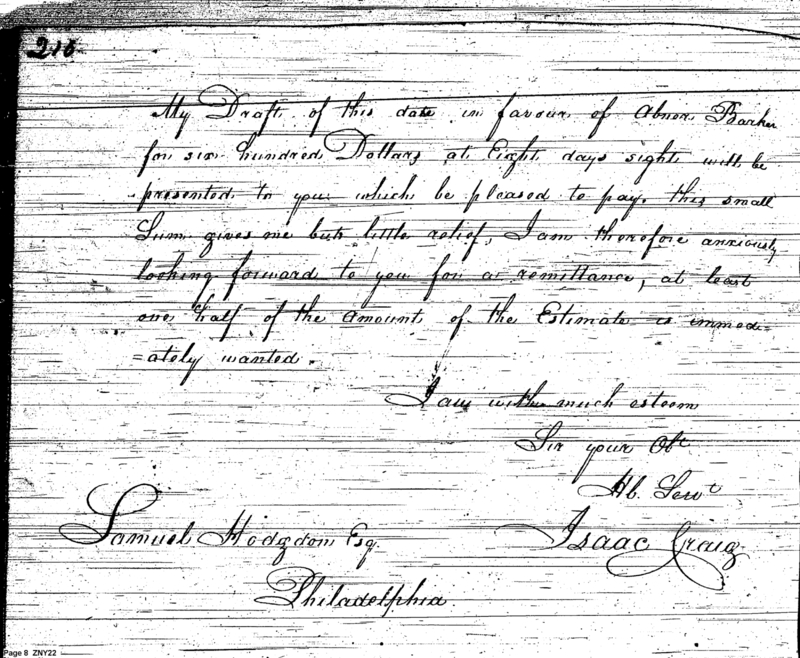 216
My Draft of this date in favour of Abner Barker
for six hundred Dollars, at Eight days sight will be
presented to you which be pleased to pay. this small
Sum gives me but little relief, I am therefore anxiously
looking forward to you for a remittance, at least
one half of the amount of the Estimate is immed=
=ately wanted.
I am with much esteem
Sir your Obt
Hb. Servt
Isaac Craig
Samuel Hodgdon Esq.
Philadelphia
Page 8 ZNY22